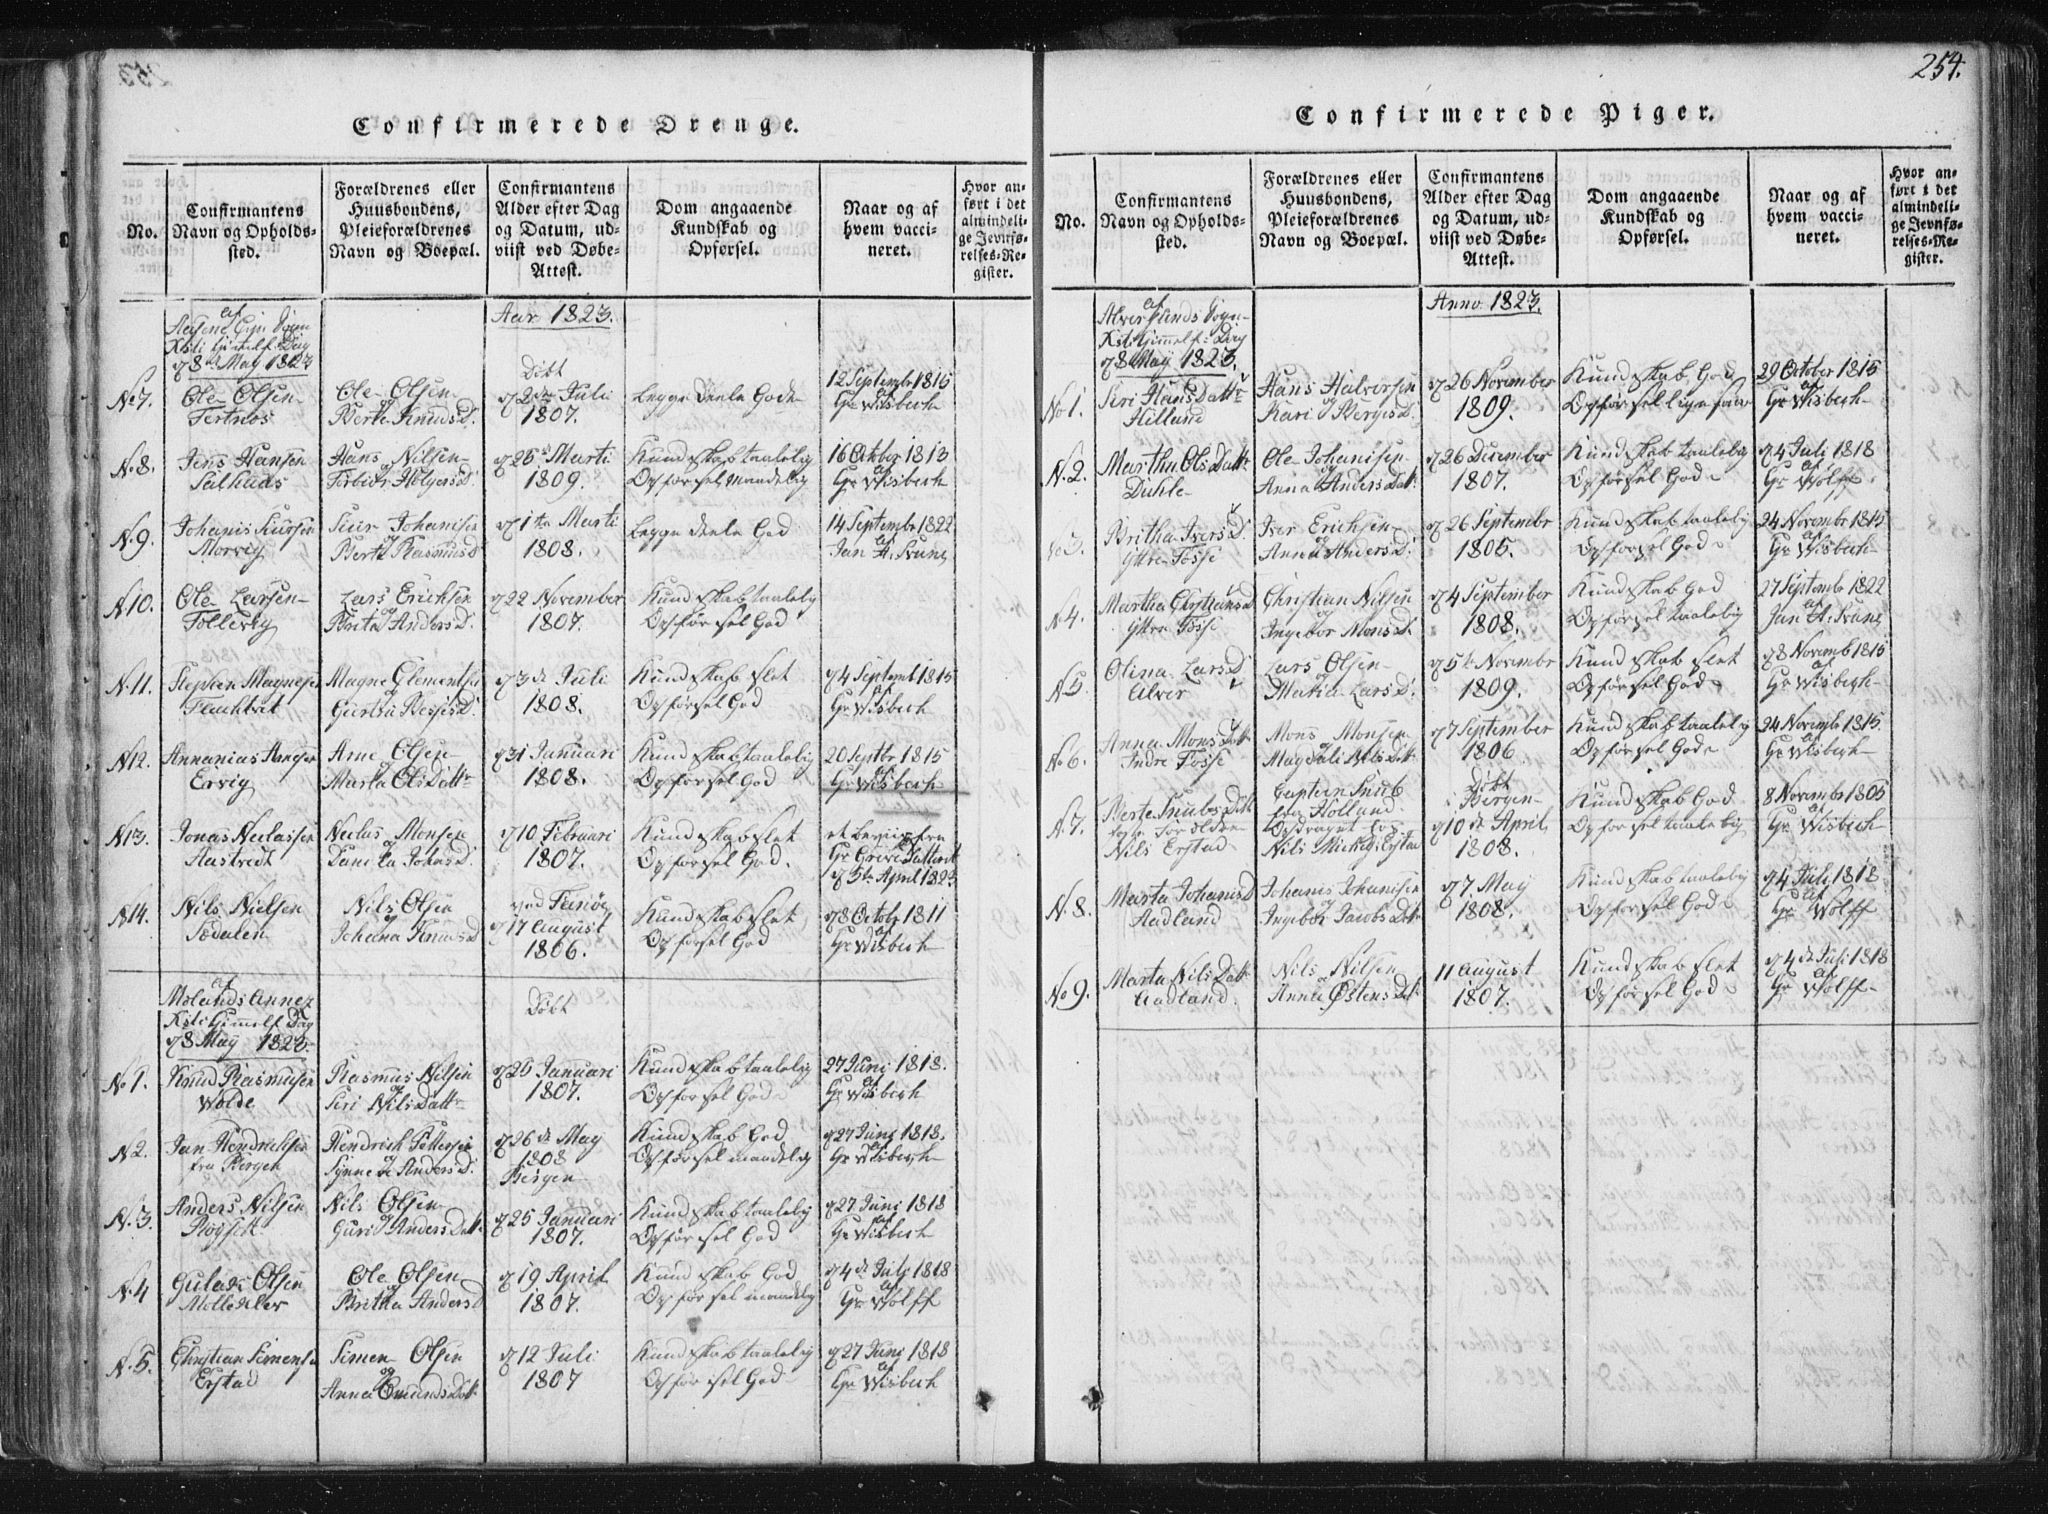 254.
Confirmerede Drenge.
No.
Confirmantens
Navn og Opholds-
sted.
Forældrenes eller
Huusbondens,
Pleieforældrenes
Navn og Boepæl.
Confirmantens
Alder efter Dag
og Datum, ud-
viist ved Døbe-
Attest.
Dom angaaende
Kundskab og
Opførsel.
Naar og af
hvem vacci-
neret.
Hvor an-
ført i det
almindeli-
ge Jevnfø-
relses-Re-
gister.
Aar 1823.
8de May 1823
No 7.
Ole Olsen
Tertnes
Ole Olsen
og
Berte Knuds D.
Døbt
d 2den Juli
1807.
begge deele Gode
12 Septembr 1815
af
Hr Wisbech
N. 8.
Jens Hansen
Salhuus
Hans Nilsen
og
Holgers D.
d 25de Marti
1809.
Kundskab taalelig
Opførsel maadelig
16 October 1813
af
Hr Wisbech
N. 9.
Johanis Siursen
Morvig
Siur Johanisen
og
Berte Rasmus D
d 1te Marti
1808.
begge deele God
14 Septembr 1822
af
Jan A. Irune
N. 10.
Ole Larsen
Tollevig
Lars Erichsen
og
Brita Anders D.
d 22 November
1807.
Kundskab taalelig
Opførsel God
N. 11.
Stephen Magnesen
Magne Clementsen
og
d 3de Juli
1808.
Kundskab slet
Opførsel God
d 4 Septemb 1815
af
Hr Wisbech
N12.
Annanias Arnesen
Ervig
Arne Olsen
og
Marta Ols Dattr
d 31 Januari
1808.
Kundskab taalelig
Opførsel God
20 Septbr 1815
af
Hr Wisbech
N13.
Jonas Neclassen
Aastvedt
Neclas Monsen
og
d 10 Februari
1807.
Kundskab slet
Opførsel God.
et beviis fra
Hr Greve
d 5te April 1823
N14.
Nils Nielsen
Sædalen
Nils Olsen
og
Johana Knuds D
d 17 August
1806.
Kundskab slet
Opførsel God
d 8 Octobr 1811
af
Hr Wisbech
af
Mølands Annex
d 8 May 1823
Døbt
No 1.
Knud Rasmusen
Wolde
Rasmus Nilsen
og
Siri Nils Dattr
d 25 Januari
1807.
Kundskab taalelig
Opførsel God
27 Juni 1818.
af
Hr Wisbech
N2.
Jan Hendrichsen
fra Bergen
Hendrich Pettersen
og
Synneve Anders D.
d 26de May
1808
Bergen
Kundskab God
Opførsel maadelig
d 27 Juni 1818.
af
Hr Wisbech
N. 3.
Anders Nilsen
Nils Olsen
og
Guri Anders Datr
d 25 Januari
1807.
Kundskab taalelig
Opførsel God
d 27 Juni 1818
af
Hr Wisbech
N. 4
Gulach Olsen
Ole Olsen
og
Britha Anders D
d 19 April
1807.
Kundskab God
Opførsel maadelig
d 4de July 1818
af
Hr Wolff
N. 5.
Christian Simens.
Erstad
Simen Olsen
og
Anna Omunds Datr
d 12 Juli
1807
Kundskab taalelig
Opførsel God
d 27 Juni 1818
af
Hr Wisbech
Confirmerede Piger.
No.
Confirmantens
Navn og Opholds-
sted.
Forældrenes eller
Huusbondens,
Pleieforældrenes
Navn og Boepæl.
Confirmantens
Alder efter Dag
og Datum, ud-
viist ved Døbe-
Attest.
Dom angaaende
Kundskab og
Opførsel.
Naar og af
hvem vacci-
neret.
Hvor an-
ført i det
almindeli-
ge Jevnfø-
relses-Re-
gister.
Anno 1823.
af
Alverstunds Sogn
d 8 May 1823.
No 1.
Siri Hans Dattr
Hilland
Hans Halvorsen
og
Kari Børges D.
d 26 November
1809.
Kundskab God
29 October 1815
af
Hr Wisbech
N. 2.
Martha Ols Dattr
Duhle
Ole Johanisen
og
Anna Anders Datr
d 26 December
1807.
Kundskab taalelig
Opførsel God
d 4 Juli 1818
af
Hr Wolff
No 3.
Britha Ivers D.
Yttre Fosse
Iver Erichsen
og
Anna Anders D.
d 26 Septembr
1805.
Kundskab taalelig
Opførsel God
24 Novembr 1815
af
Hr Wisbech
N. 4.
Martha Christians D
Yttre Fosse
Christian Nilsen
og
Ingebor Mons D.
d 4 September
1808.
Kundskab God
Opførsel taalelig
27 Septembr 1822
af
Jan A. Irune
N5.
Olina Lars D
Alver
Lars Olsen
og
Lars D.
d 5te Novembr
1809.
Kundskab slet
Opførsel God
d 8 Novemb 1815
af
Hr Wisbech
No 6.
Anna Mons Datr
Indre Fosse
Mons Monsen
og
Magdeli Nils Datr
d 7 September
1806
Kundskab taalelig
Opførsel God
24 Novembr 1815
af
Hr Wisbech
N. 7.
Berte Snubs Datr
Nils Erstad
Captein Snub
fra Holland
Opdraget hos
Nils Erstad
Døbt
i Bergen
d 10de April
1808.
Kundskab God
Opførsel taalelig
8 Novembr 1805
af
Hr Wisbech
N. 8.
Marta Johanis D
Aadland
Johanis Johanisen
og
Ingebor Jacobs Datr
d 7 May
1808.
Kundskab taalelig
Opførsel God
d 4 Juli 1818
af
Hr Wolff
No 9.
Marta Nils Datr
Aadland.
Nils Nilsen
og
Anna Østens Datr
11 August
1807.
Kundskab slet
Opførsel God
d 4de Juli 1818
af
Hr Wolff